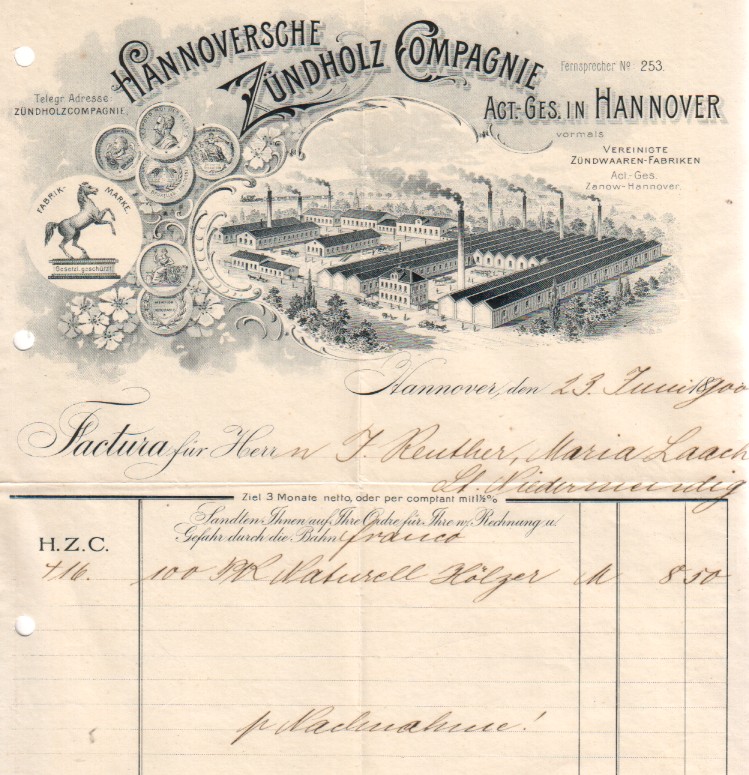 HANNOVERSCHE
ZÜNDHOLZ COMPAGNIE
Fernsprecher No 253.
Telegr. Adresse:
ZÜNDHOLZCOMPAGNIE.
ACT.-GES. IN HANNOVER
vormals
VEREINIGTE
ZÜNDWAAREN-FABRIKEN
Act.-Ges.
Zanow-Hannover.
FABRIK- MARKE.
Gesetzl. geschützt
Hannover, den 23. Juni 1900
Factura für Herrn J. Reuther, Maria Laach
St. Niedermendig
Ziel 3 Monate netto, oder per comptant mit 1½%
Sandten Ihnen auf Ihre Ordre für Ihre w. Rechnung u.
Gefahr durch die Bahn franco
H.Z.C.
416. 100 Pk Naturell Hölzer M 8 50
p Nachnahme!